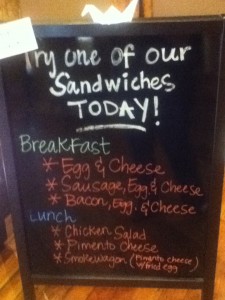 Try one of our
Sandwiches
TODAY!
Breakfast
* Egg & Cheese
* Sausage, Egg & Cheese
* Bacon, Egg & Cheese
Lunch
* Chicken Salad
* Pimento Cheese
* Smokewagon (Pimento cheese
w/fried egg)